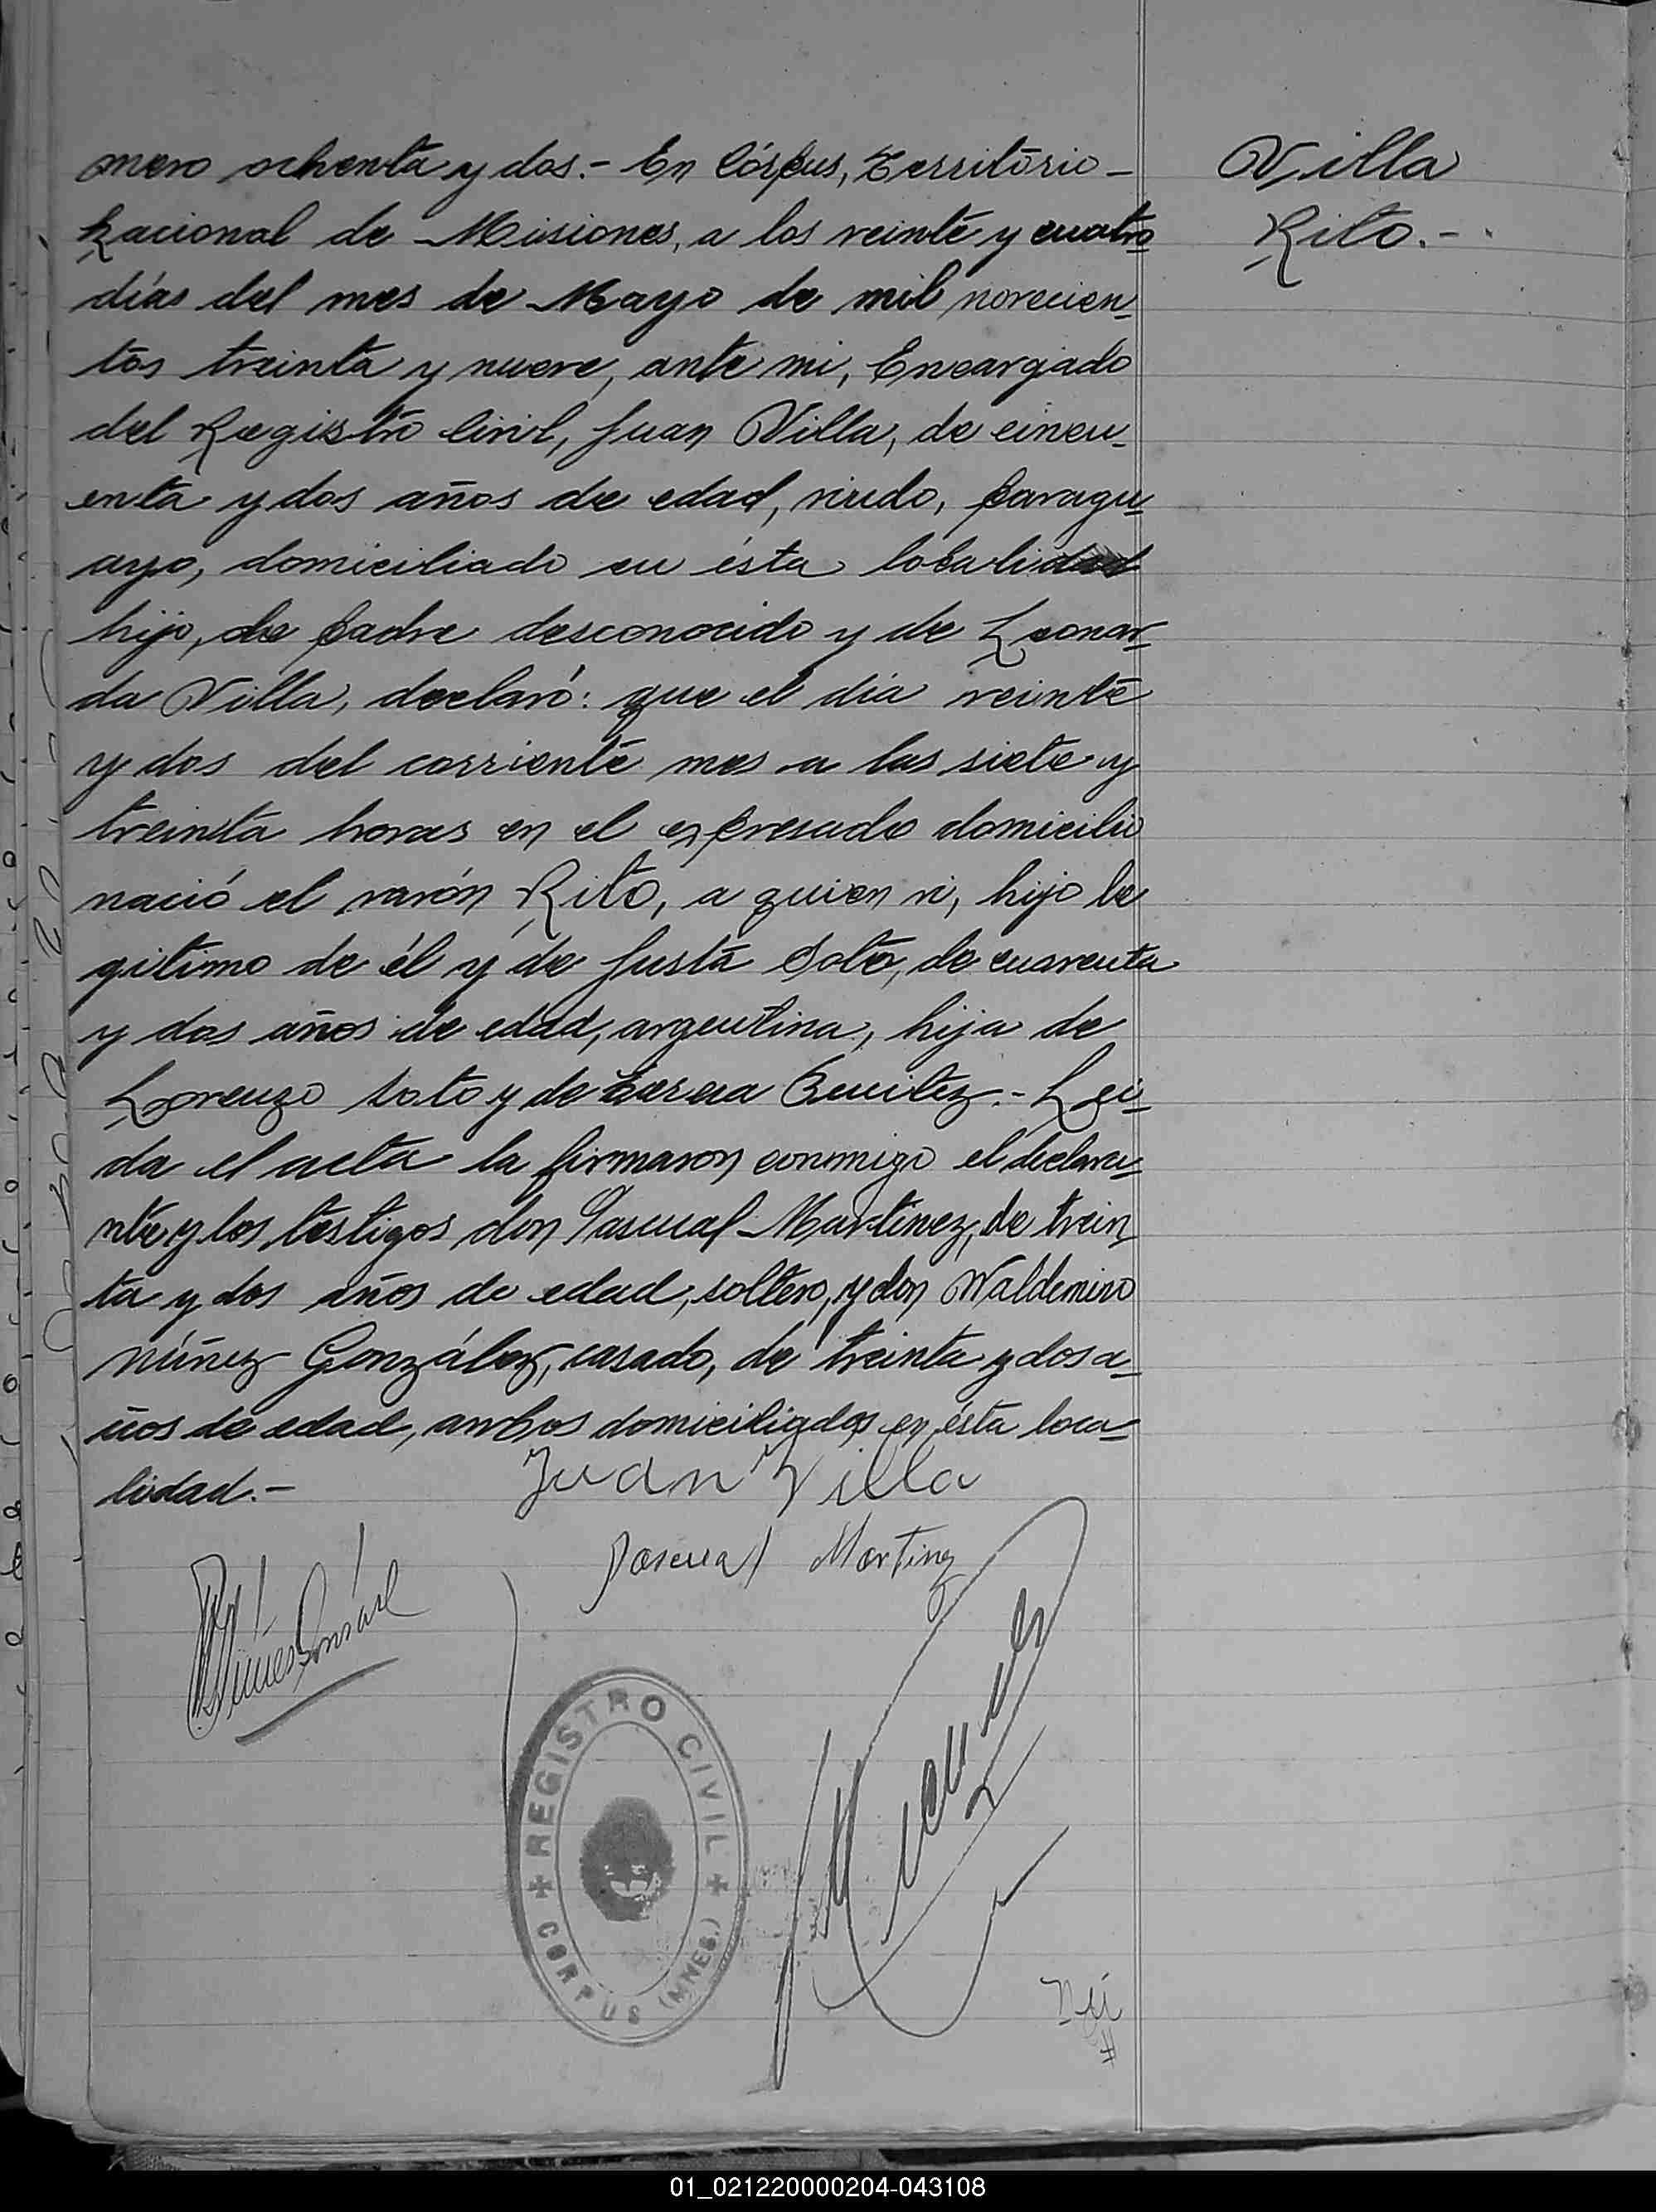 mero ochenta y dos.- En Córpus, Territorio-
Nacional de Misiones, a los veinte y cuatro
días del mes de Mayo de mil novecien-
tos treinta y nueve, ante mi, Encargado
del Registro Civil, Juan Villa, de cincu-
enta y dos años de edad, viudo, paragu-
ayo, domiciliado en ésta localidad
hijo, de padre desconocido y de Leonar-
da Villa, declaró: que el día veinte
y dos del corriente mes a las siete y
treinta horas en el expresado domicilio
nació el varón Rito, a quien vi, hijo le
gitimo de él y de Justa Soto, de cuarenta
y dos años de edad, argentina, hija de
Lorenzo Soto y de Benitez.- Lei-
da el acta la firmaron conmigo el declara-
nte y los testigos don Pascual Martinez, de trein
ta y dos años de edad, soltero, y don Waldemiro
Núñez González, casado, de treinta y dos a-
ños de edad, ambos domiciliados en ésta loca-
lidad.-
Juan Villa
Pascual Martinez
REGISTRO CIVIL
CORPUS (MNES.)
Nú
Villa
Rito.-
01_021220000204-043108